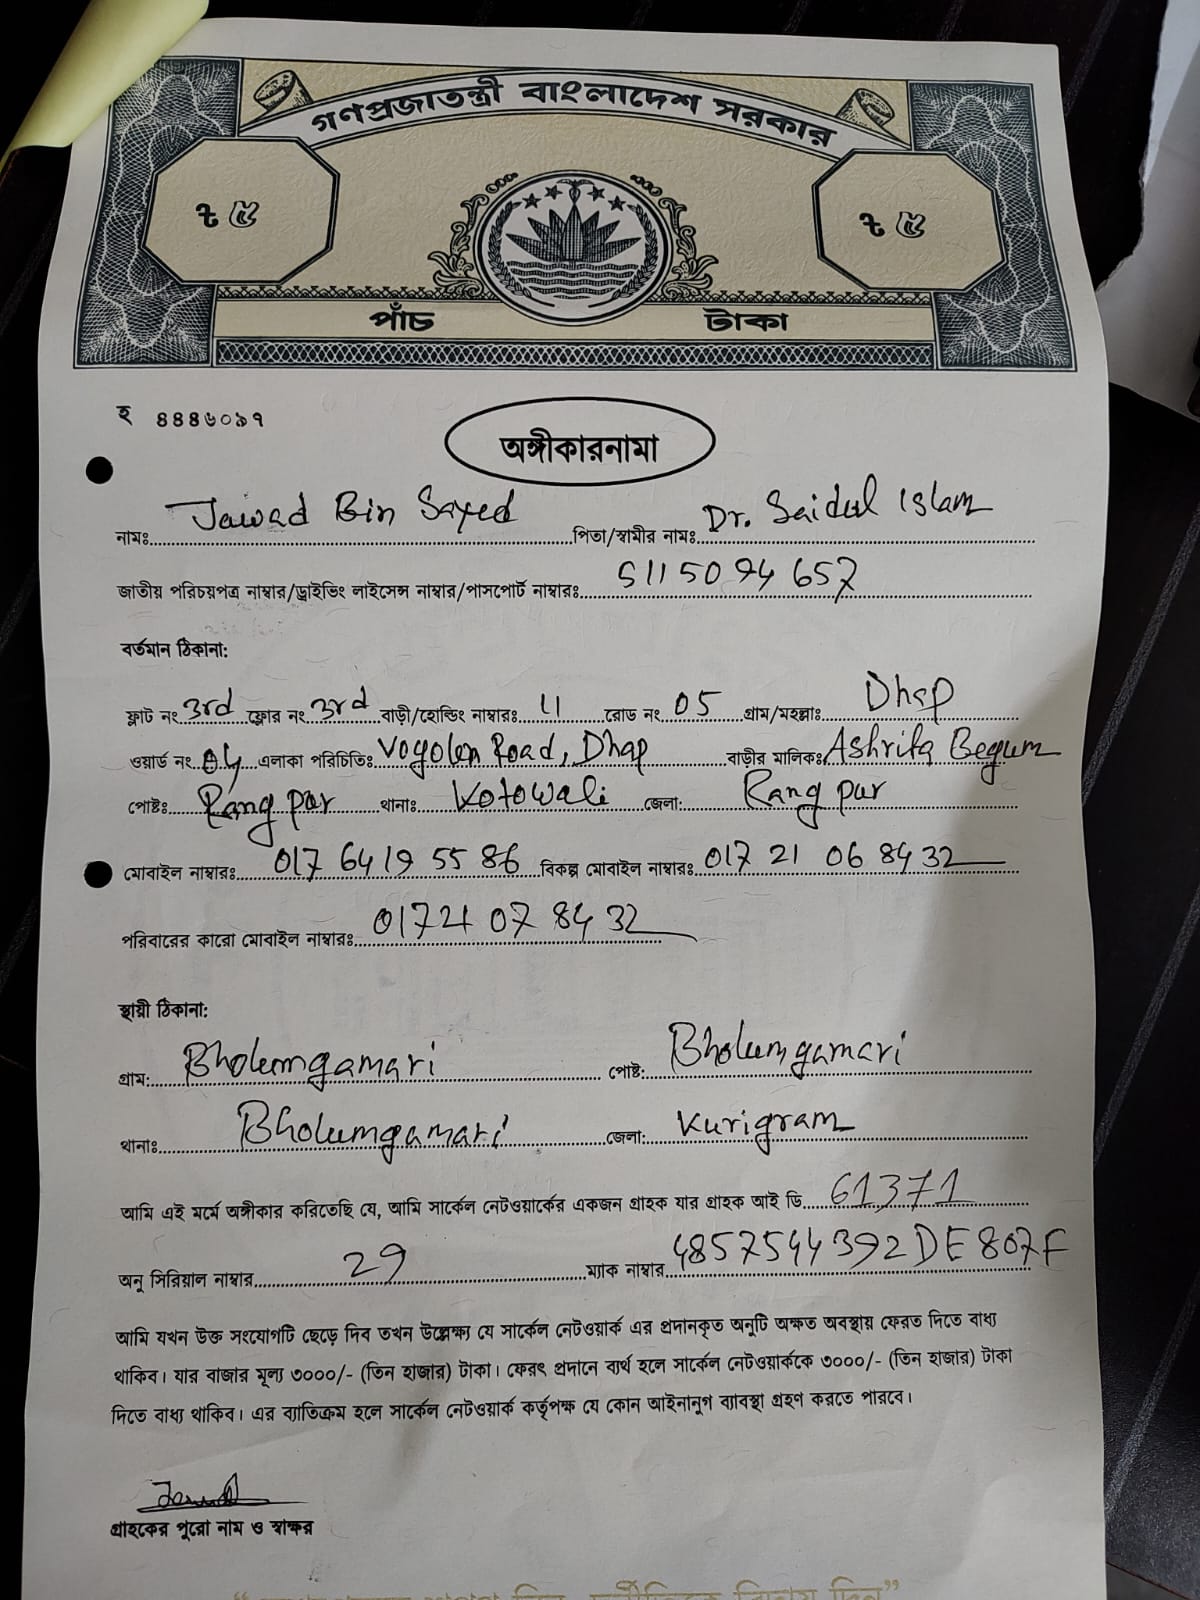 গণপ্রজাতন্ত্রী বাংলাদেশ সরকার
৳ ৫ ৳ ৫
পাঁচ টাকা
হ ৪৪৪৬০৯৭
অঙ্গীকারনামা
নামঃ Jawad Bin Sayed পিতা/স্বামীর নামঃ Dr. Saidul Islam
জাতীয় পরিচয়পত্র নাম্বার/ড্রাইভিং লাইসেন্স নাম্বার/পাসপোর্ট নাম্বারঃ 5115094657
বর্তমান ঠিকানা:
ফ্লাট নং 3rd ফ্লোর নং 3rd বাড়ী/হোল্ডিং নাম্বারঃ 11 রোড নং 05 গ্রাম/মহল্লাঃ Dhap
ওয়ার্ড নং 04 এলাকা পরিচিতিঃ Vogolen Road, Dhap বাড়ীর মালিকঃ Ashrifa Begum
পোষ্টঃ Rangpur থানাঃ Kotowali জেলা: Rangpur
মোবাইল নাম্বারঃ 017 64 19 55 86 বিকল্প মোবাইল নাম্বারঃ 017 21 06 84 32
পরিবারের কারো মোবাইল নাম্বারঃ 01721 07 84 32
স্থায়ী ঠিকানা:
গ্রাম: Bholumgamari পোষ্ট: Bholumgamari
থানাঃ Bholumgamari জেলা: Kurigram
আমি এই মর্মে অঙ্গীকার করিতেছি যে, আমি সার্কেল নেটওয়ার্কের একজন গ্রাহক যার গ্রাহক আই ডি 61371
অনু সিরিয়াল নাম্বার 29 ম্যাক নাম্বার 48575444392DE807F
আমি যখন উক্ত সংযোগটি ছেড়ে দিব তখন উল্লেক্ষ্য যে সার্কেল নেটওয়ার্ক এর প্রদানকৃত অনুটি অক্ষত অবস্থায় ফেরত দিতে বাধ্য
থাকিব। যার বাজার মূল্য ৩০০০/- (তিন হাজার) টাকা। ফেরৎ প্রদানে ব্যর্থ হলে সার্কেল নেটওয়ার্ককে ৩০০০/- (তিন হাজার) টাকা
দিতে বাধ্য থাকিব। এর ব্যাতিক্রম হলে সার্কেল নেটওয়ার্ক কর্তৃপক্ষ যে কোন আইনানুগ ব্যাবস্থা গ্রহণ করতে পারবে।
গ্রাহকের পুরো নাম ও স্বাক্ষর